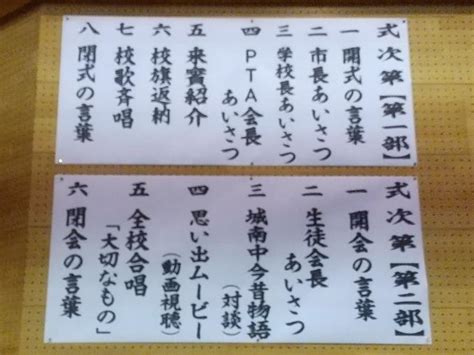 式次第【第一部】
一 開式の言葉
二 市長あいさつ
三 学校長あいさつ
四 PTA会長
あいさつ
五 来賓紹介
六 校旗返納
七 校歌斉唱
八 閉式の言葉
式次第【第二部】
一 開会の言葉
二 生徒会長
あいさつ
三 城南中今昔物語
(対談)
四 思い出ムービー
(動画視聴)
五 全校合唱
「大切なもの」
六 閉会の言葉